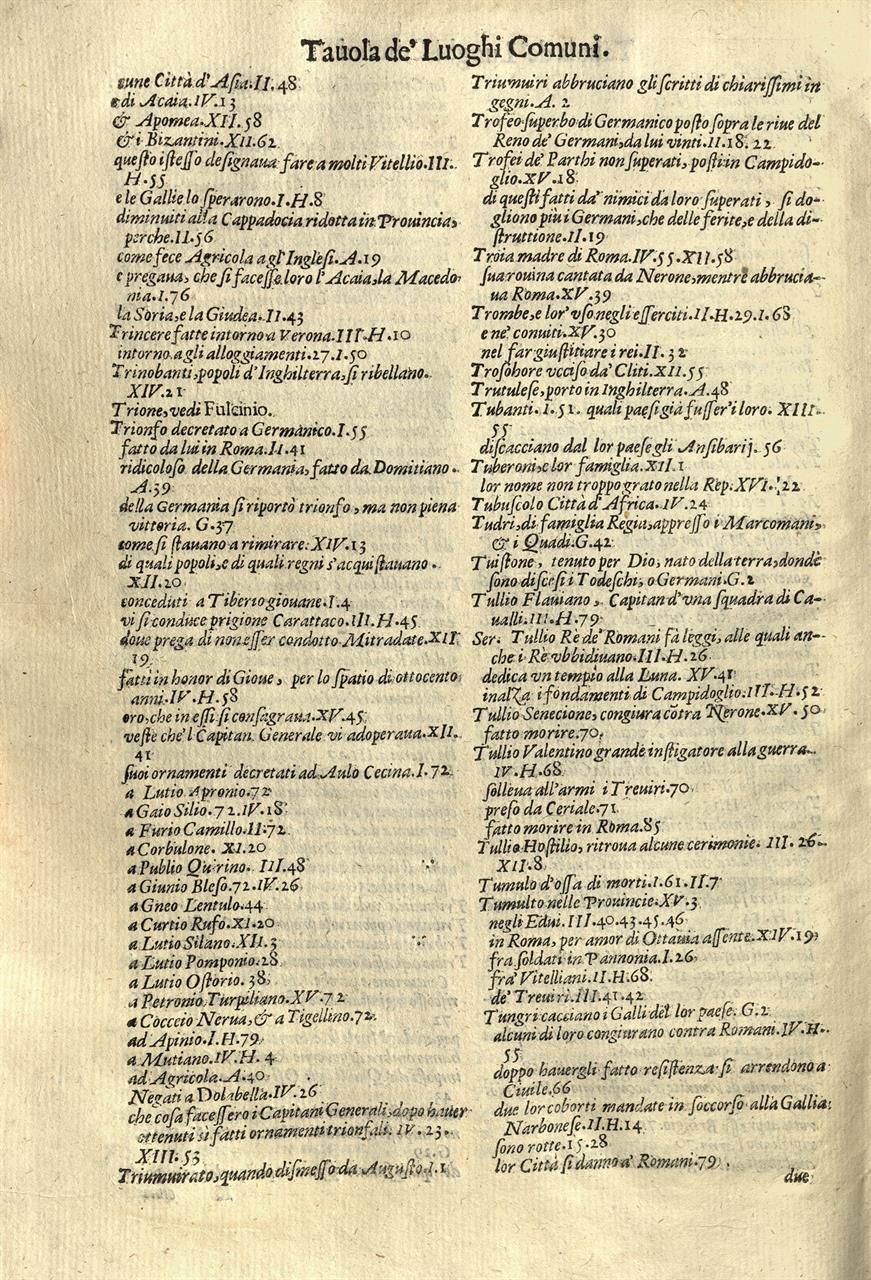 Tauola de' Luoghi Comuni.
cune Città d'Asia.II.48
e di Acaia.IV.13
& Apomea.XII.58
& i Bizantini.XII.62
questo istesso designaua fare a molti Vitellio.III.
H.55
e le Gallie lo sperarono.I.H.8
diminuiti alla Cappadocia ridotta in Prouincia,
perche.II.56
come fece Agricola a gl'Inglesi.A.19
e pregaua, che si facesse loro l'Acaia, la Macedo-
nia.I.76
la Soria, e la Giudea.II.43
Trincere fatte intorno a Verona.III.H.10
intorno a gli alloggiamenti.27.I.50
Trinobanti, popoli d'Inghilterra, si ribellano.
XIV.21
Trione, vedi Fulcinio.
Trionfo decretato a Germanico.I.55
fatto da lui in Roma.II.41
ridicoloso della Germania, fatto da Domitiano.
A.39
della Germania si riportò trionfo, ma non piena
vittoria. G.37
come si stauano a rimirare.XIV.13
di quali popoli, e di quali regni s'acquistauano.
XII.20
conceduti a Tiberio giouane.I.4
vi si conduce prigione Carattaco.III.H.45
doue prega di non esser condotto Mitradate.XII
19
fatti in honor di Gioue, per lo spatio di ottocento
anni.IV.H.58
oro, che in essi si consagraua.XV.45
veste che'l Capitan Generale vi adoperaua.XII.
41
suoi ornamenti decretati ad Aulo Cecina.I.72
a Lutio Apronio.72
a Gaio Silio.72.IV.18
a Furio Camillo.II.72
a Corbulone. XI.20
a Publio Quirino. III.48
a Giunio Bleso.72.IV.26
a Gneo Lentulo.44
a Curtio Rufo.XI.20
a Lutio Silano.XII.3
a Lutio Pomponio.28
a Lutio Ostorio. 38
a Petronio Turpiliano.XV.72
a Cocceio Nerua, & a Tigellino.72
ad Apinio.I.H.79
a Mutiano.IV.H. 4
ad Agricola.A.40
Negati a Dolabella.IV.26
che cosa facessero i Capitani Generali, dopo hauer
ottenuti sì fatti ornamenti trionfali. IV. 23.
XIII.53
Triumuirato, quando dismesso da Augusto.I.1
Triumuiri abbruciano gli scritti di chiarissimi in
gegni.A. 2
Trofeo superbo di Germanico posto sopra le riue del
Reno de' Germani, da lui vinti.II.18. 22
Trofei de' Parthi non superati, posti in Campido-
glio.XV.18
di questi fatti da' nimici da loro superati, si do-
gliono piu i Germani, che delle ferite, e della di-
struttione.II.19
Troia madre di Roma.IV.55.XII.58
sua rouina cantata da Nerone, mentre abbrucia-
ua Roma.XV.39
Trombe, e lor' vso negli esserciti.II.H.29.I.68
e ne' conuiti.XV.30
nel far giustitiare i rei.II.32
Trosobore vcciso da' Cliti.XII.55
Trutulese, porto in Inghilterra.A.48
Tubanti.I.51. quali paesi già fusser'i loro. XIII.
55
discacciano dal lor paese gli Ansibarij. 56
Tuberoni, e lor famiglia.XII.1
lor nome non troppo grato nella Rep.XVI.22
Tubuscolo Città d'Africa.IV.24
Tudri, di famiglia Regia, appresso i Marcomani,
& i Quadi.G.42
Tuistone, tenuto per Dio, nato della terra, donde
sono discesi i Todeschi, o Germani.G.2
Tullio Flauiano, Capitan d'vna squadra di Ca-
ualli.III.H.79
Ser. Tullio Re de' Romani fa leggi, alle quali an-
che i Re vbbidiuano.III.H.26
dedica vn tempio alla Luna. XV.41
inalza i fondamenti di Campidoglio.III.H.52
Tullio Senecione, congiura cõtra Nerone.XV.50
fatto morire.70.
Tullio Valentino grande instigatore alla guerra.
IV.H.68
solleua all'armi i Treuiri.70
preso da Ceriale.71
fatto morire in Roma.85
Tullio Hostilio, ritroua alcune cerimonie. III. 26.
XII.8
Tumulo d'ossa di morti.I.61.II.7
Tumulto nelle Prouincie.XV.3
negli Edui.III.40.43.45.46
in Roma, per amor di Ottauia assente.XIV.19
fra soldati in Pannonia.I.26
fra' Vitelliani.II.H.68
de' Treuiri.III.41.42
Tungri cacciano i Galli del lor paese. G.2
alcuni di loro congiurano contra Romani.IV.H.
55
doppo hauergli fatto resistenza si arrendono a
Ciuile.66
due lor coborti mandate in soccorso alla Gallia
Narbonese.II.H.14
sono rotte.15.28
lor Città si danno a' Romani.79
due